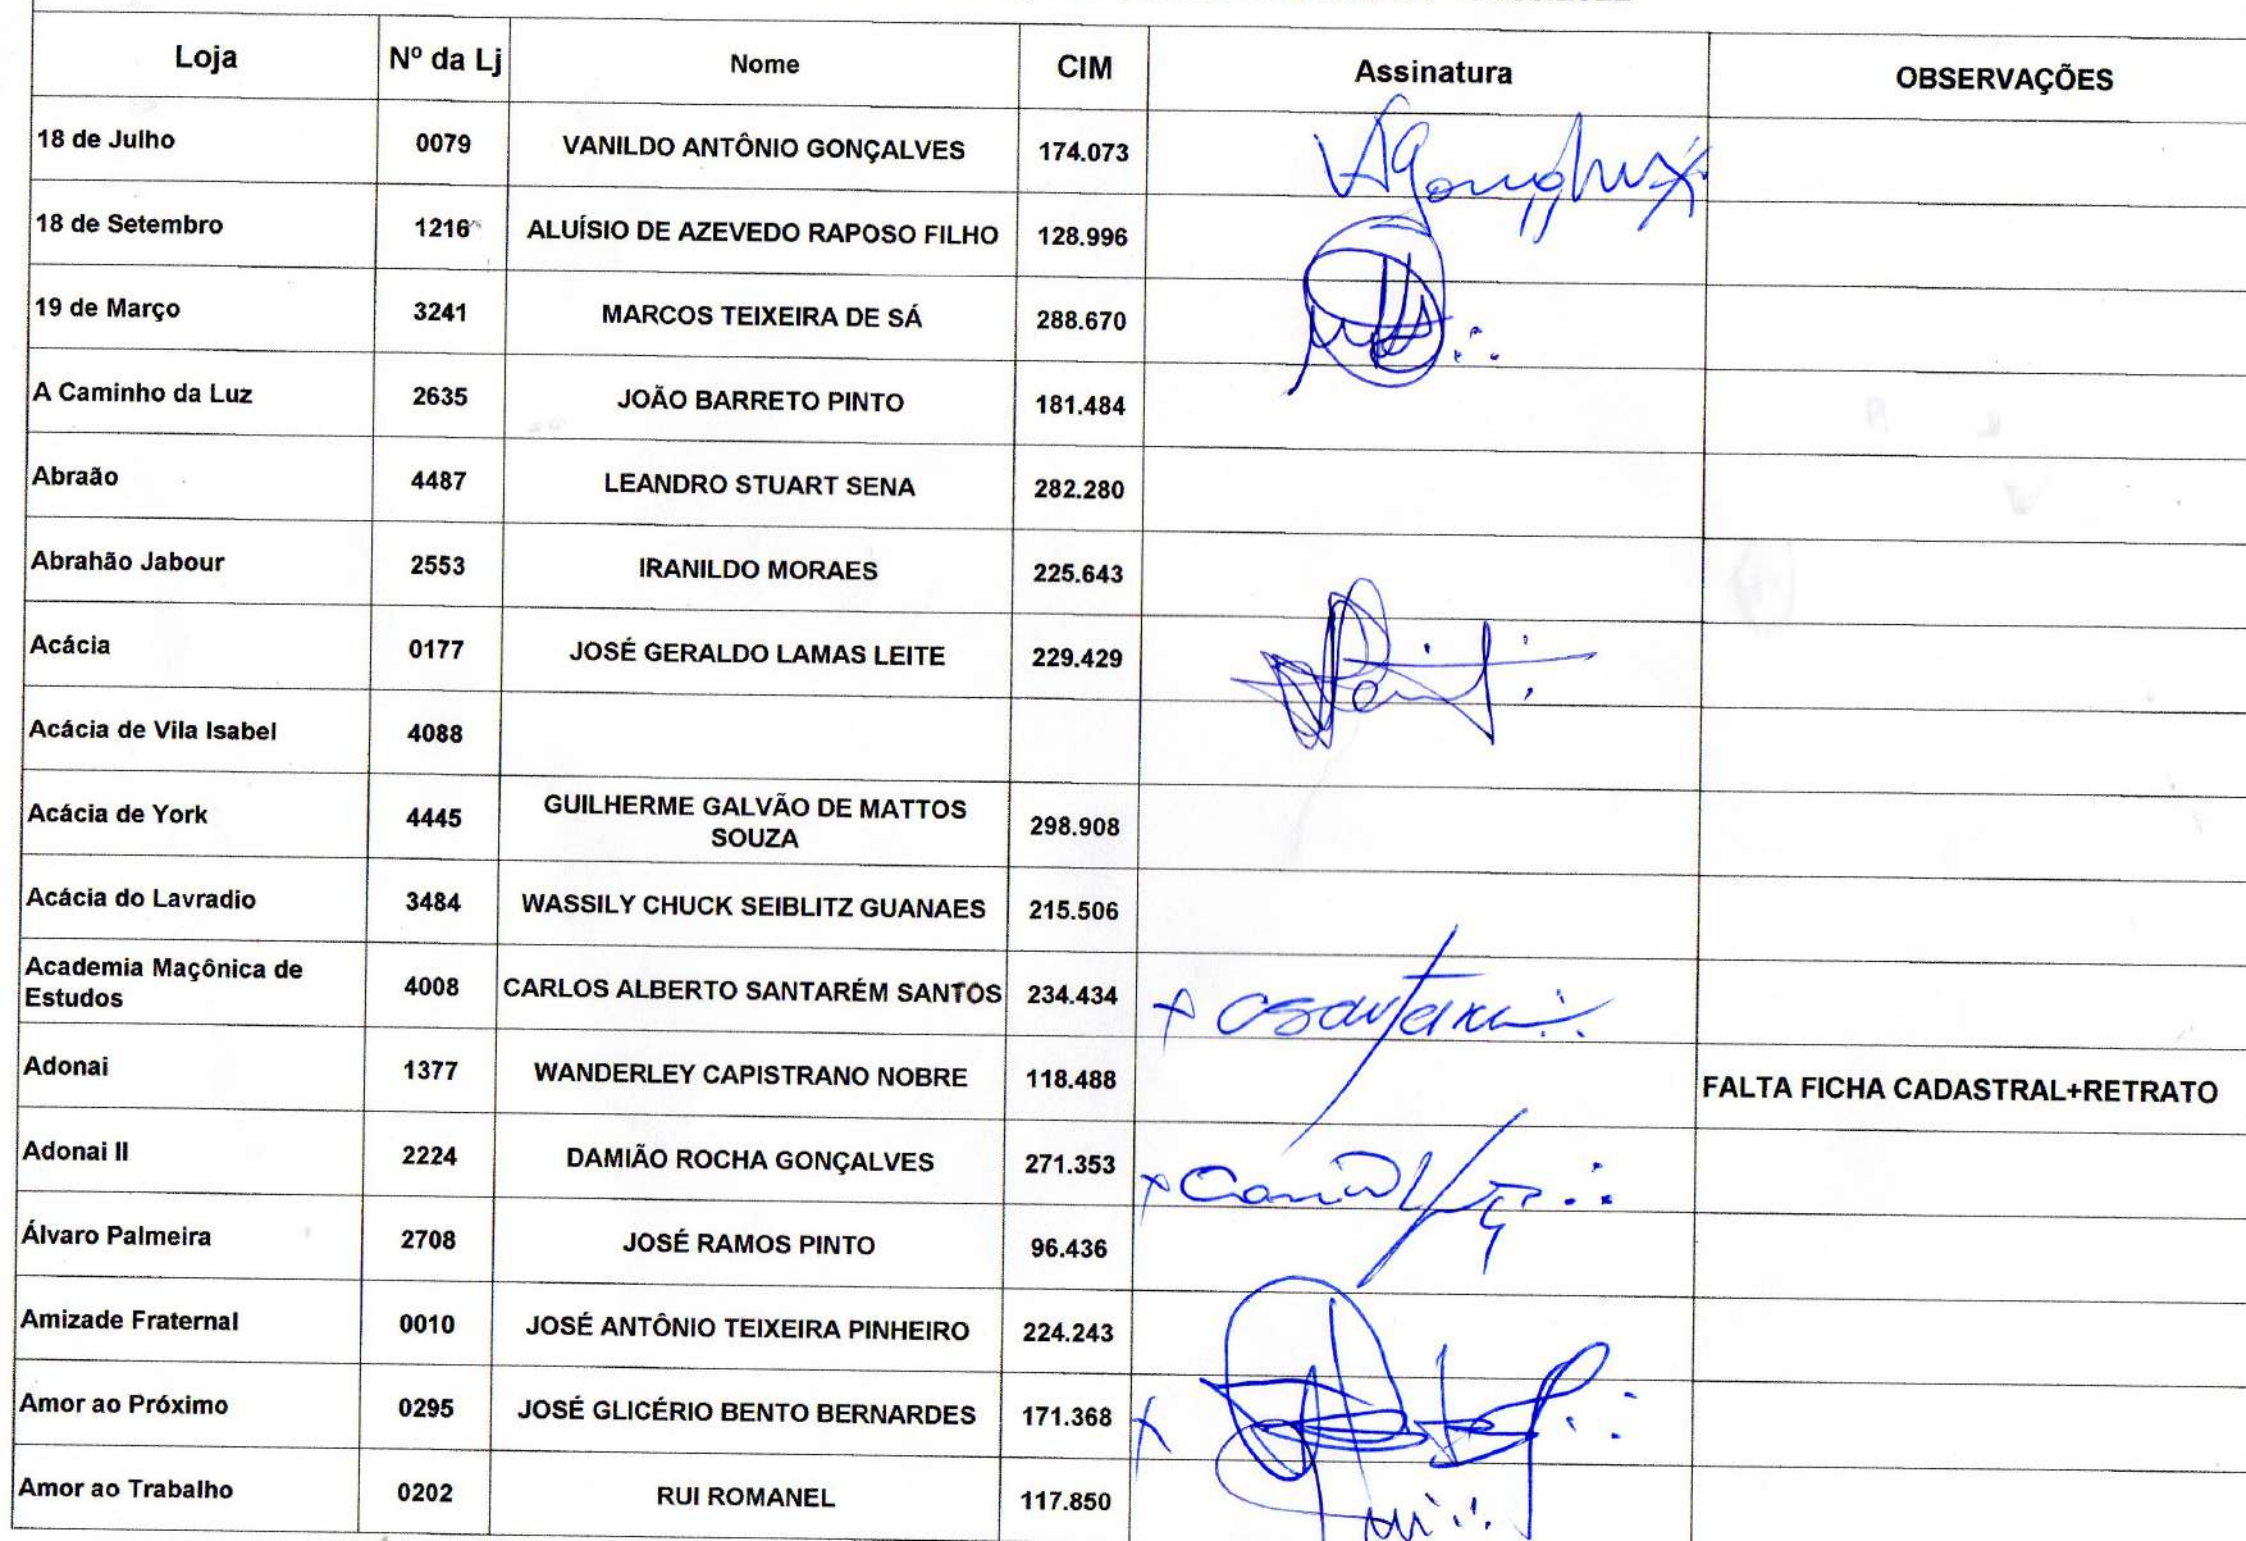 Loja Nº da Lj Nome CIM Assinatura OBSERVAÇÕES
18 de Julho 0079 VANILDO ANTÔNIO GONÇALVES 174.073
18 de Setembro 1216 ALUÍSIO DE AZEVEDO RAPOSO FILHO 128.996
19 de Março 3241 MARCOS TEIXEIRA DE SÁ 288.670
A Caminho da Luz 2635 JOÃO BARRETO PINTO 181.484
Abraão 4487 LEANDRO STUART SENA 282.280
Abrahão Jabour 2553 IRANILDO MORAES 225.643
Acácia 0177 JOSÉ GERALDO LAMAS LEITE 229.429
Acácia de Vila Isabel 4088
Acácia de York 4445 GUILHERME GALVÃO DE MATTOS
SOUZA 298.908
Acácia do Lavradio 3484 WASSILY CHUCK SEIBLITZ GUANAES 215.506
Academia Maçônica de
Estudos 4008 CARLOS ALBERTO SANTARÉM SANTOS 234.434
Adonai 1377 WANDERLEY CAPISTRANO NOBRE 118.488 FALTA FICHA CADASTRAL+RETRATO
Adonai II 2224 DAMIÃO ROCHA GONÇALVES 271.353
Álvaro Palmeira 2708 JOSÉ RAMOS PINTO 96.436
Amizade Fraternal 0010 JOSÉ ANTÔNIO TEIXEIRA PINHEIRO 224.243
Amor ao Próximo 0295 JOSÉ GLICÉRIO BENTO BERNARDES 171.368
Amor ao Trabalho 0202 RUI ROMANEL 117.850